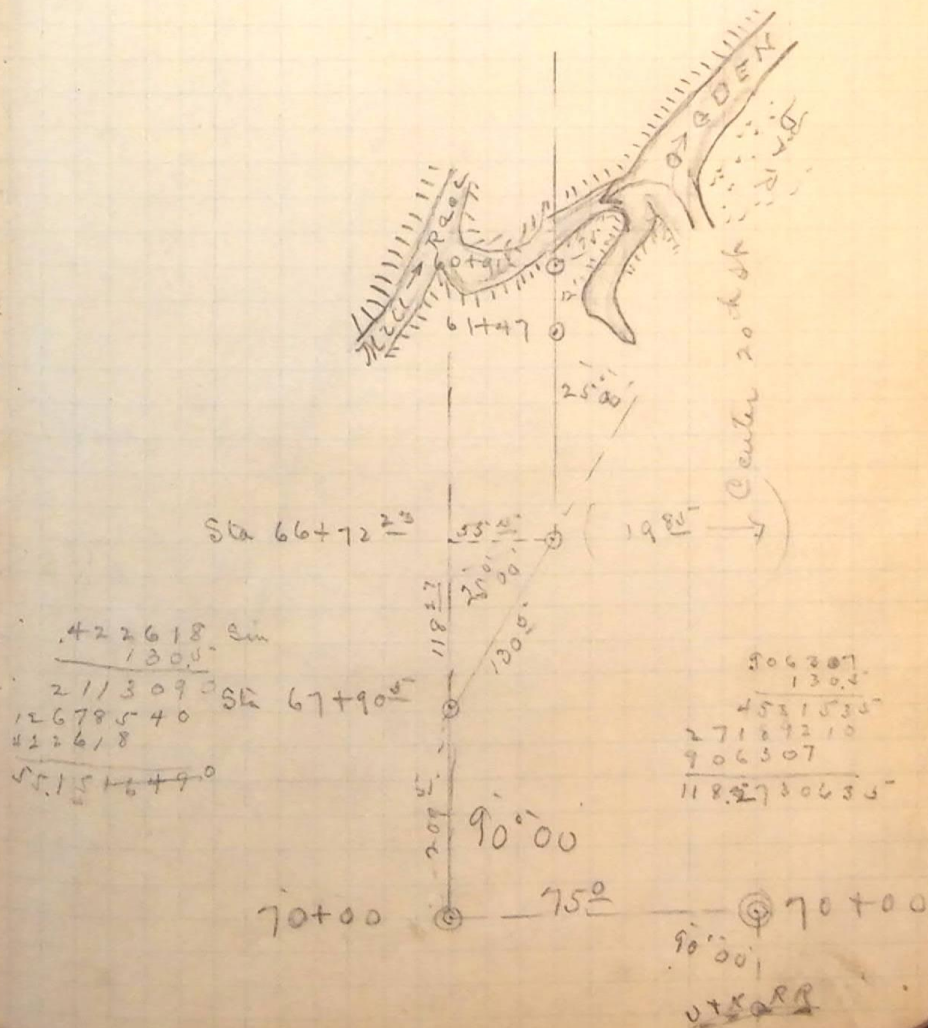 OGDEN
Mill Race
61+47
25°00'
Center 20th St
Sta 66+72 23
55 15
19 85
25°00'
118 27
130 5
.422618 Sin
130.5
2113090
12678540
422618
55.1516490
Sta 67+90 5
906307
130.5
4531535
27189210
906307
118.2730635
209 5
90°00
70+00
75 0
70+00
90°00'